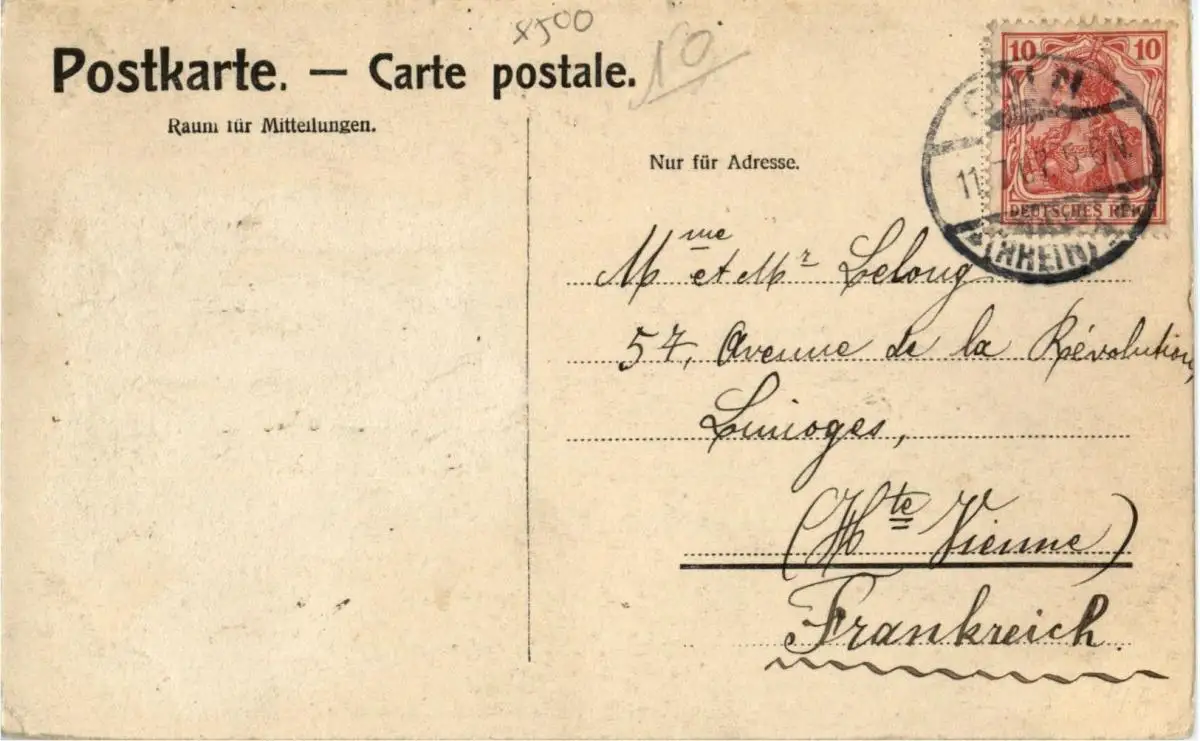 8500
10
Postkarte. — Carte postale.
Raum für Mitteilungen.
Nur für Adresse.
10 10
DEUTSCHES REICH
11. 7. 5-6N.
(RHEIN)
Mme et Mr Lelong
57, Avenue de la Révolution,
Limoges,
(Hte Vienne)
Frankreich.